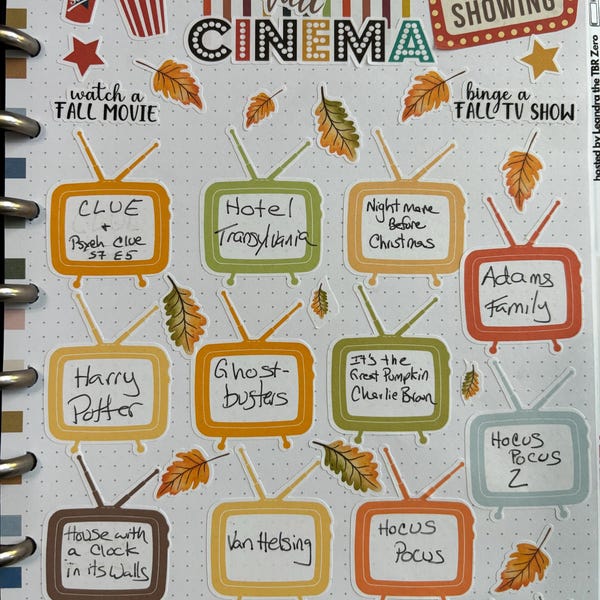 fall
CINEMA
SHOWING
watch a
FALL MOVIE
binge a
FALL TV SHOW
hosted by Leandra the TBR Zero
CLUE
+
Psych Clue
S7 E5
Hotel
Transylvania
Nightmare
Before
Christmas
Adams
Family
Harry
Potter
Ghost-
busters
It's the
Great Pumpkin
Charlie Brown
Hocus
Pocus
2
House with
a Clock
in its Walls
Van Helsing
Hocus
Pocus